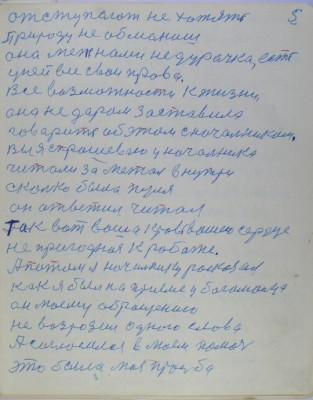 5
отступсают не хотят
природу не обманиш
она меж нами не дурачка,
у ней все свои права.
Все возможности к жизни,
она не даром заставила
говарить об этом с начальником.
я спрашеваю у начальника
читали
сколко была пуля
он ответил читал
Так вот ваша сердце
не пригодная к работе.
А потом я начальнику расказал
как я был на приеме у
он моему обращению
не возрозил одного слова
А согласился в моем помоч
это была моя прозба